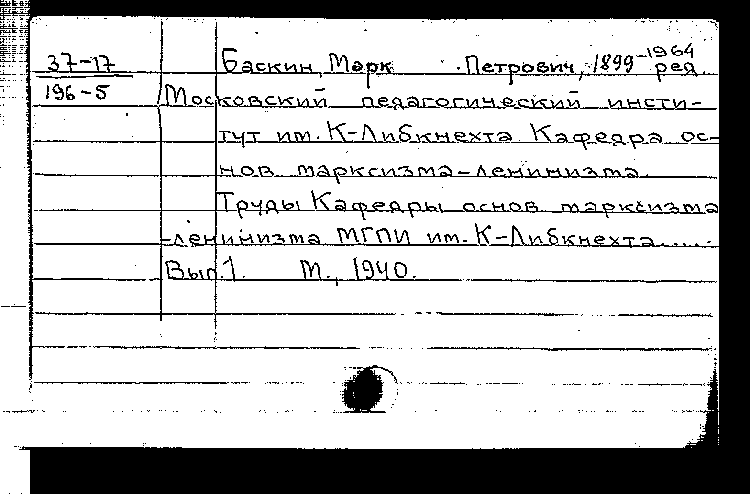 37-17 Баскин, Марк Петрович, 1899-1964 ред.
196-5 Московский педагогический инсти-
тут им. К-Либкнехта Кафедра ос-
нов марксизма-ленинизма.
Труды Кафедры основ марксизма
-ленинизма МГПИ им. К-Либкнехта.....
Вып.1. М., 1940.